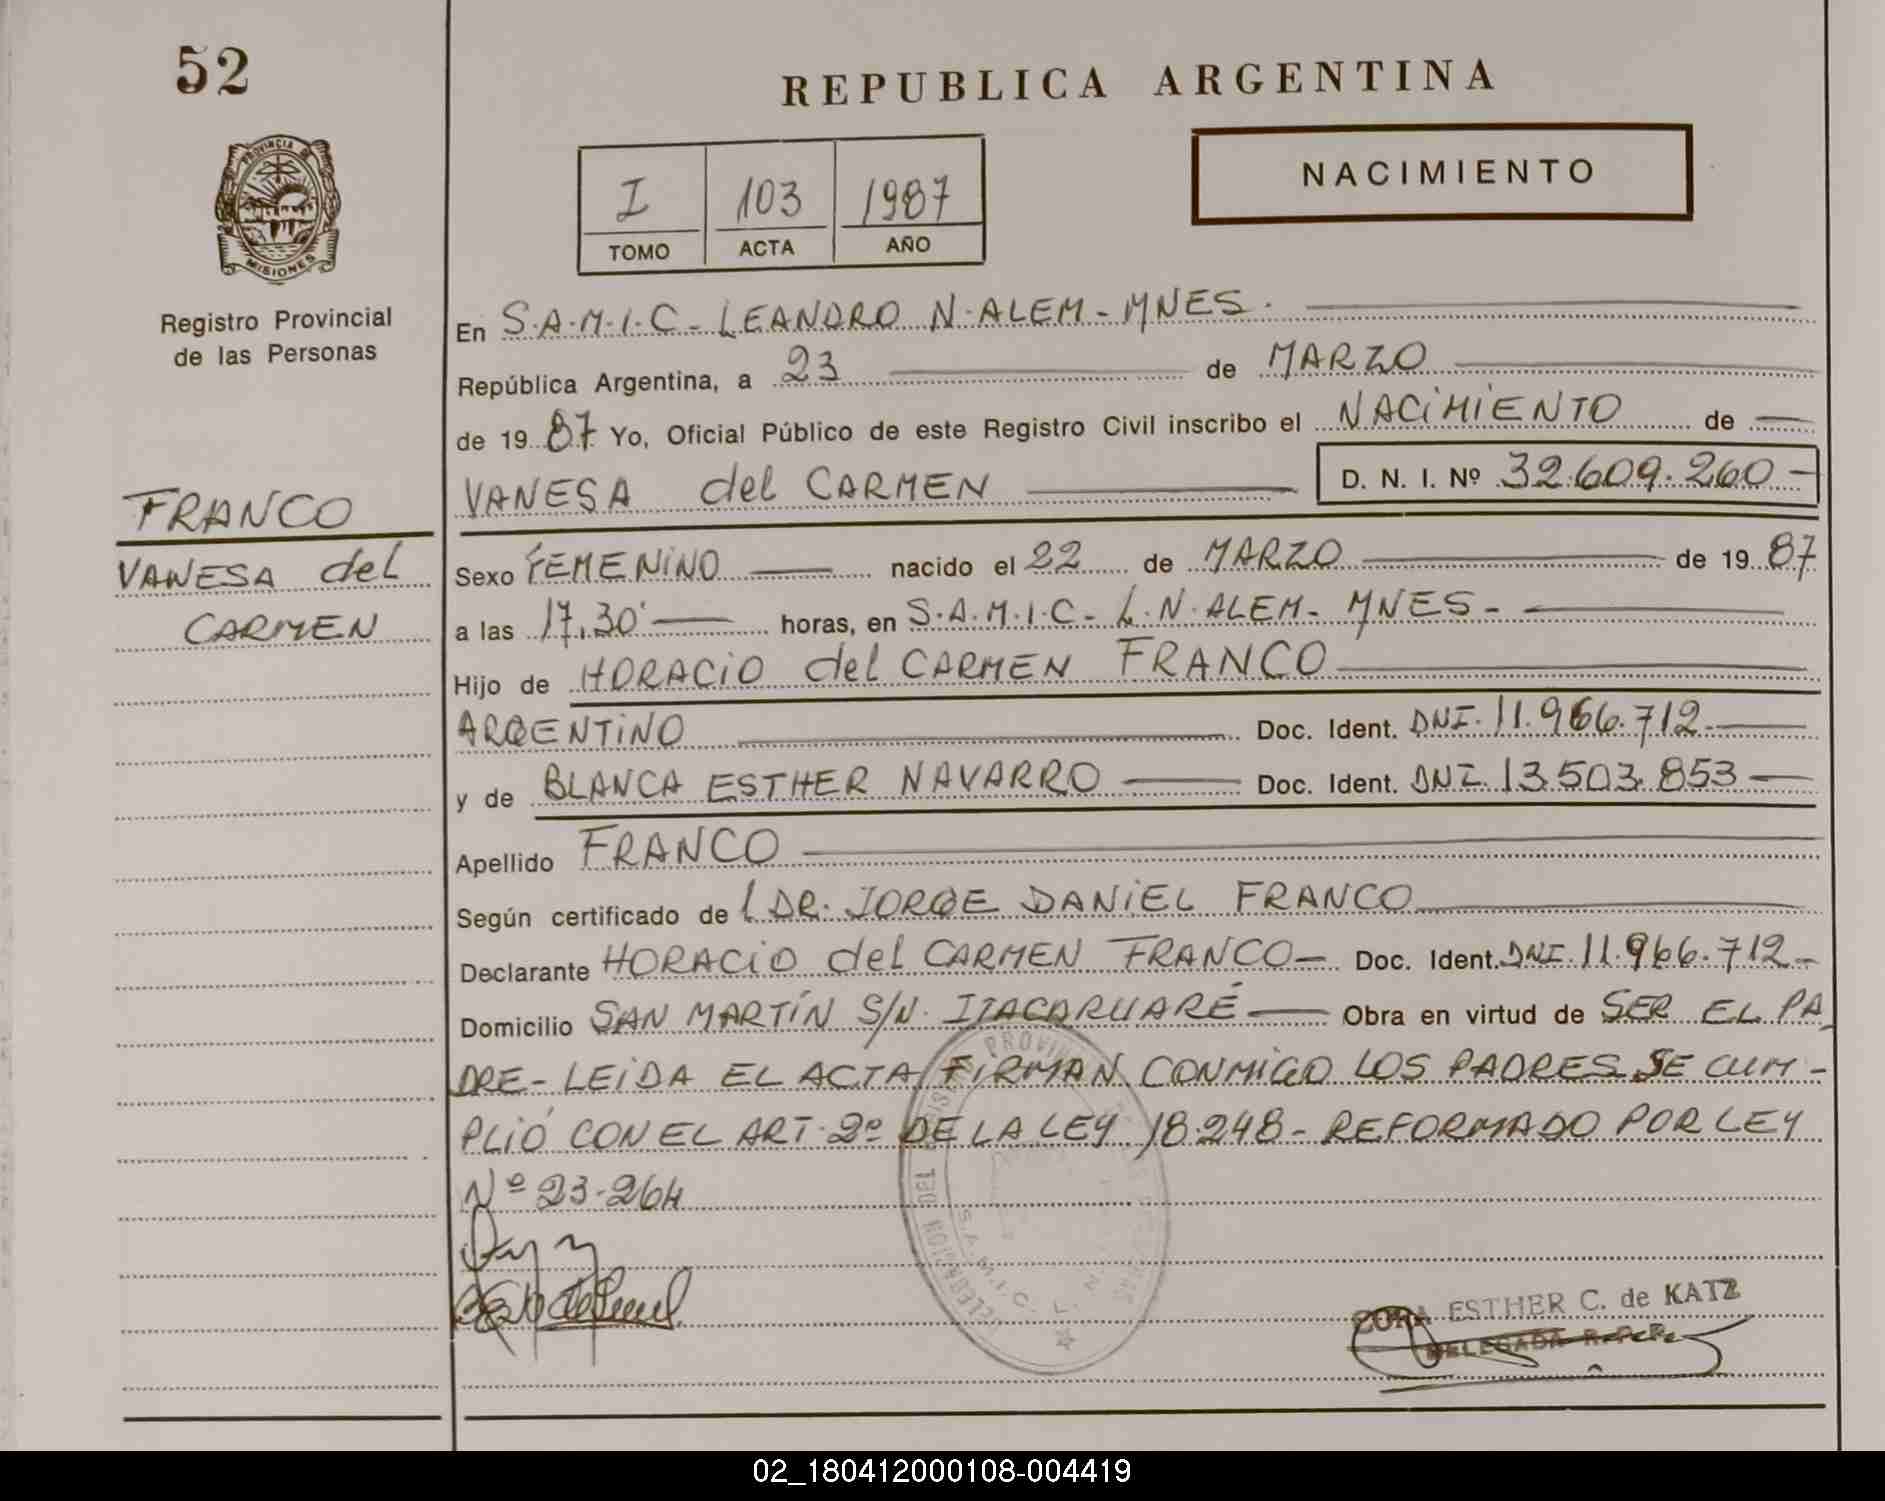 52
REPUBLICA ARGENTINA
PROVINCIA DE
MISIONES
I 103 1987
TOMO ACTA AÑO
NACIMIENTO
Registro Provincial
de las Personas
FRANCO
VANESA del
CARMEN
En S.A.M.I.C - LEANDRO N. ALEM - MNES.
República Argentina, a 23 de MARZO
de 1987 Yo, Oficial Público de este Registro Civil inscribo el NACIMIENTO de
VANESA del CARMEN D. N. I. Nº 32.609.260
Sexo FEMENINO nacido el 22 de MARZO de 1987
a las 17,30' horas, en S.A.M.I.C - L.N. ALEM - MNES -
Hijo de HORACIO del CARMEN FRANCO
ARGENTINO Doc. Ident. DNI. 11.966.712
y de BLANCA ESTHER NAVARRO Doc. Ident. DNI. 13.503.853
Apellido FRANCO
Según certificado de DR. JORGE DANIEL FRANCO
Declarante HORACIO del CARMEN FRANCO - Doc. Ident. DNI. 11.966.712 -
Domicilio SAN MARTÍN S/N. ITACARUARÉ Obra en virtud de SER EL PA
DRE - LEIDA EL ACTA FIRMAN CONMIGO LOS PADRES SE CUM -
PLIÓ CON EL ART. 2º DE LA LEY 18.248 - REFORMADO POR LEY
Nº 23.264
S.A.M.I.C. L. N.
ESTHER C. de KATZ
DELEGADA
02_180412000108-004419